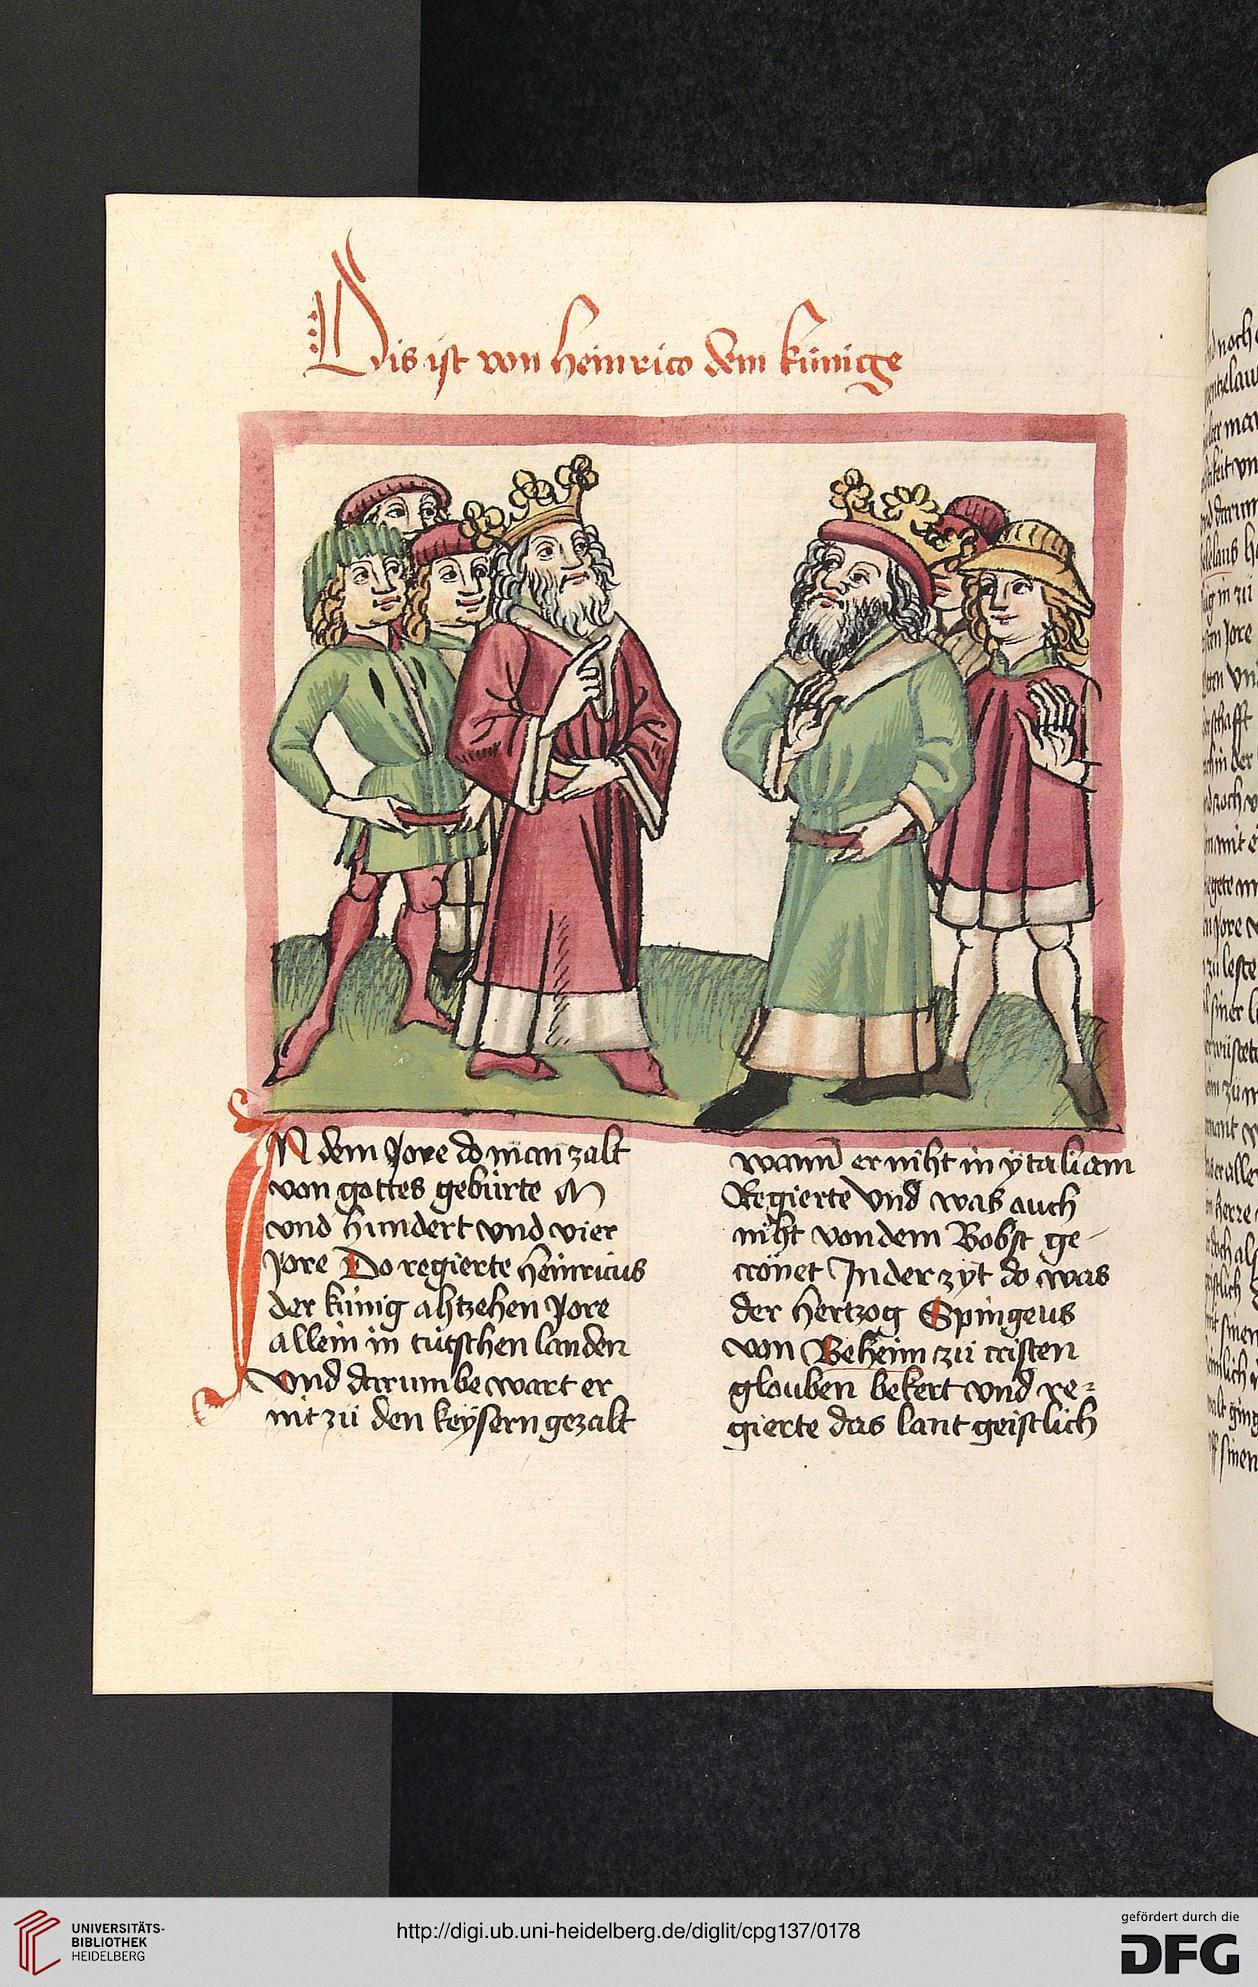 Dis ist von heinrico dem künige
IN dem Jore do man zalt
von gottes gebürte M
vnd hundert vnd vier
Jore Do regierte heinricus
der künig ahtzehen Jore
allein in tütschen landen
Vnd darumbe wart er
nit zü den keysern gezalt
wann er niht in ytaliam
Regierte Vnd was auch
niht von dem Bobst ge
crönet In der zyt do was
der hertzog Spingeus
von Beheim zü cristen
glouben bekert vnd re⸗
gierte das lant geistlich
UNIVERSITÄTS-
BIBLIOTHEK
HEIDELBERG
http://digi.ub.uni-heidelberg.de/diglit/cpg137/0178
gefördert durch die
DFG